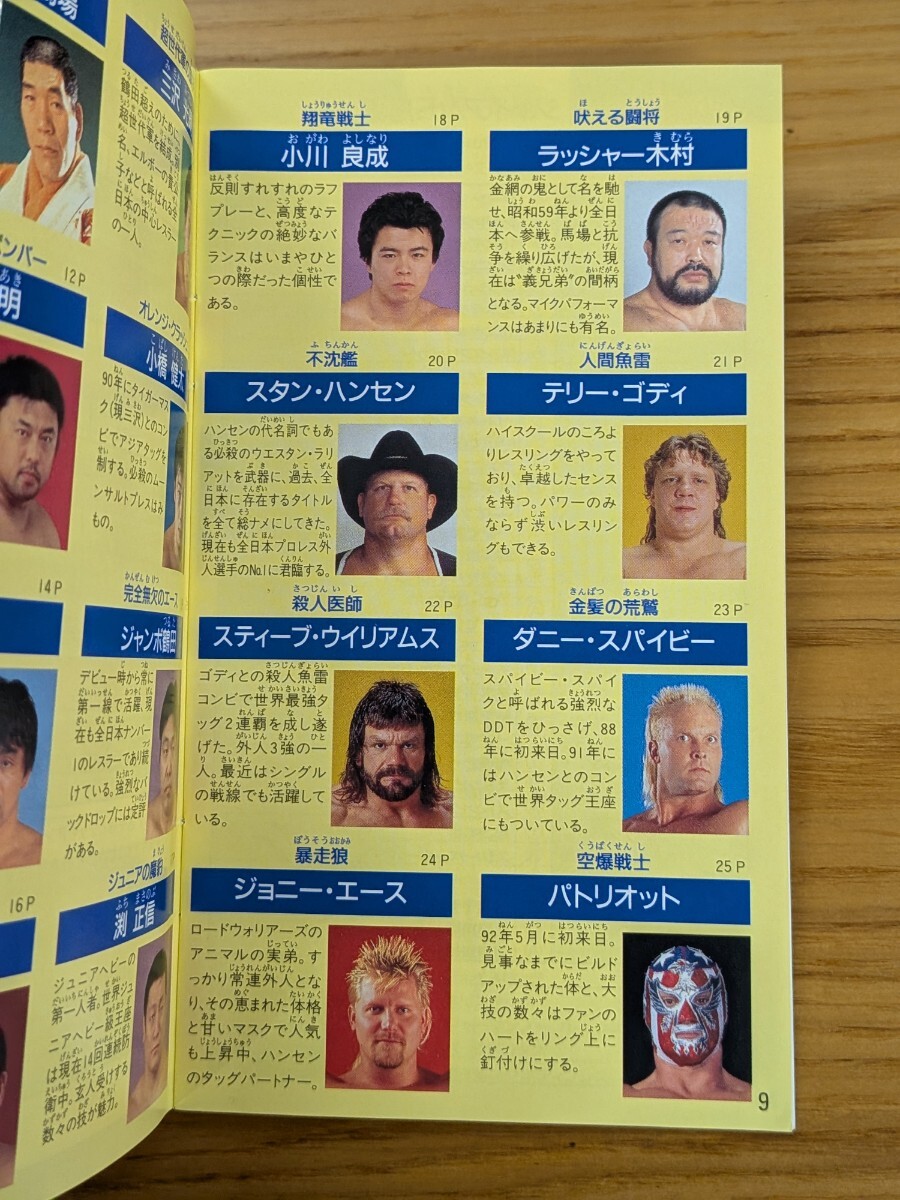 翔竜戦士 18P
小川 良成
反則すれすれのラフ
プレーと、高度なテ
クニックの絶妙なバ
ランスはいまやひと
つの際だった個性で
ある。
吠える闘将 19P
ラッシャー木村
金網の鬼として名を馳
せ、昭和59年より全日
本へ参戦。馬場と抗
争を繰り広げたが、現
在は“義兄弟”の間柄
となる。マイクパフォーマ
ンスはあまりにも有名。
不沈艦 20P
スタン・ハンセン
ハンセンの代名詞でもあ
る必殺のウエスタン・ラリ
アットを武器に、過去、全
日本に存在するタイトル
を全て総ナメにしてきた。
現在も全日本プロレス外
人選手のNo.1に君臨する。
人間魚雷 21P
テリー・ゴディ
ハイスクールのころよ
りレスリングをやって
おり、卓越したセンス
を持つ。パワーのみ
ならず渋いレスリン
グもできる。
殺人医師 22P
スティーブ・ウイリアムス
ゴディとの殺人魚雷
コンビで世界最強タ
ッグ2連覇を成し遂
げた。外人3強の一
人。最近はシングル
の戦線でも活躍して
いる。
金髪の荒鷲 23P
ダニー・スパイビー
スパイビー・スパイ
クと呼ばれる強烈な
DDTをひっさげ、88
年に初来日。91年に
はハンセンとのコン
ビで世界タッグ王座
にもついている。
暴走狼 24P
ジョニー・エース
ロードウォリアーズの
アニマルの実弟。す
っかり常連外人とな
り、その恵まれた体格
と甘いマスクで人気
も上昇中、ハンセン
のタッグパートナー。
空爆戦士 25P
パトリオット
92年5月に初来日。
見事なまでにビルド
アップされた体と、大
技の数々はファンの
ハートをリング上に
釘付けにする。
9
12P
明
14P
16P
三沢
鶴田超えのために
超世代軍を結成。別
名、エルボーの貴公
子などと呼ばれる全
日本の中心レスラー
の一人。
オレンジ・クラッシ
小橋 健太
90年にタイガーマス
ク(現三沢)とのコン
ビでアジアタッグを
制する。必殺のムー
ンサルトプレスはみ
もの。
完全無欠のエース
ジャンボ鶴田
デビュー時から常に
第一線で活躍、現
在も全日本ナンバー
1のレスラーであり続
けている。強烈なバ
ックドロップには定評
がある。
ジュニアの魔豹
渕 正信
ジュニアヘビーの
第一人者。世界ジュ
ニアヘビー級王座
は現在14回連続防
衛中。玄人受けする
数々の技が魅力。